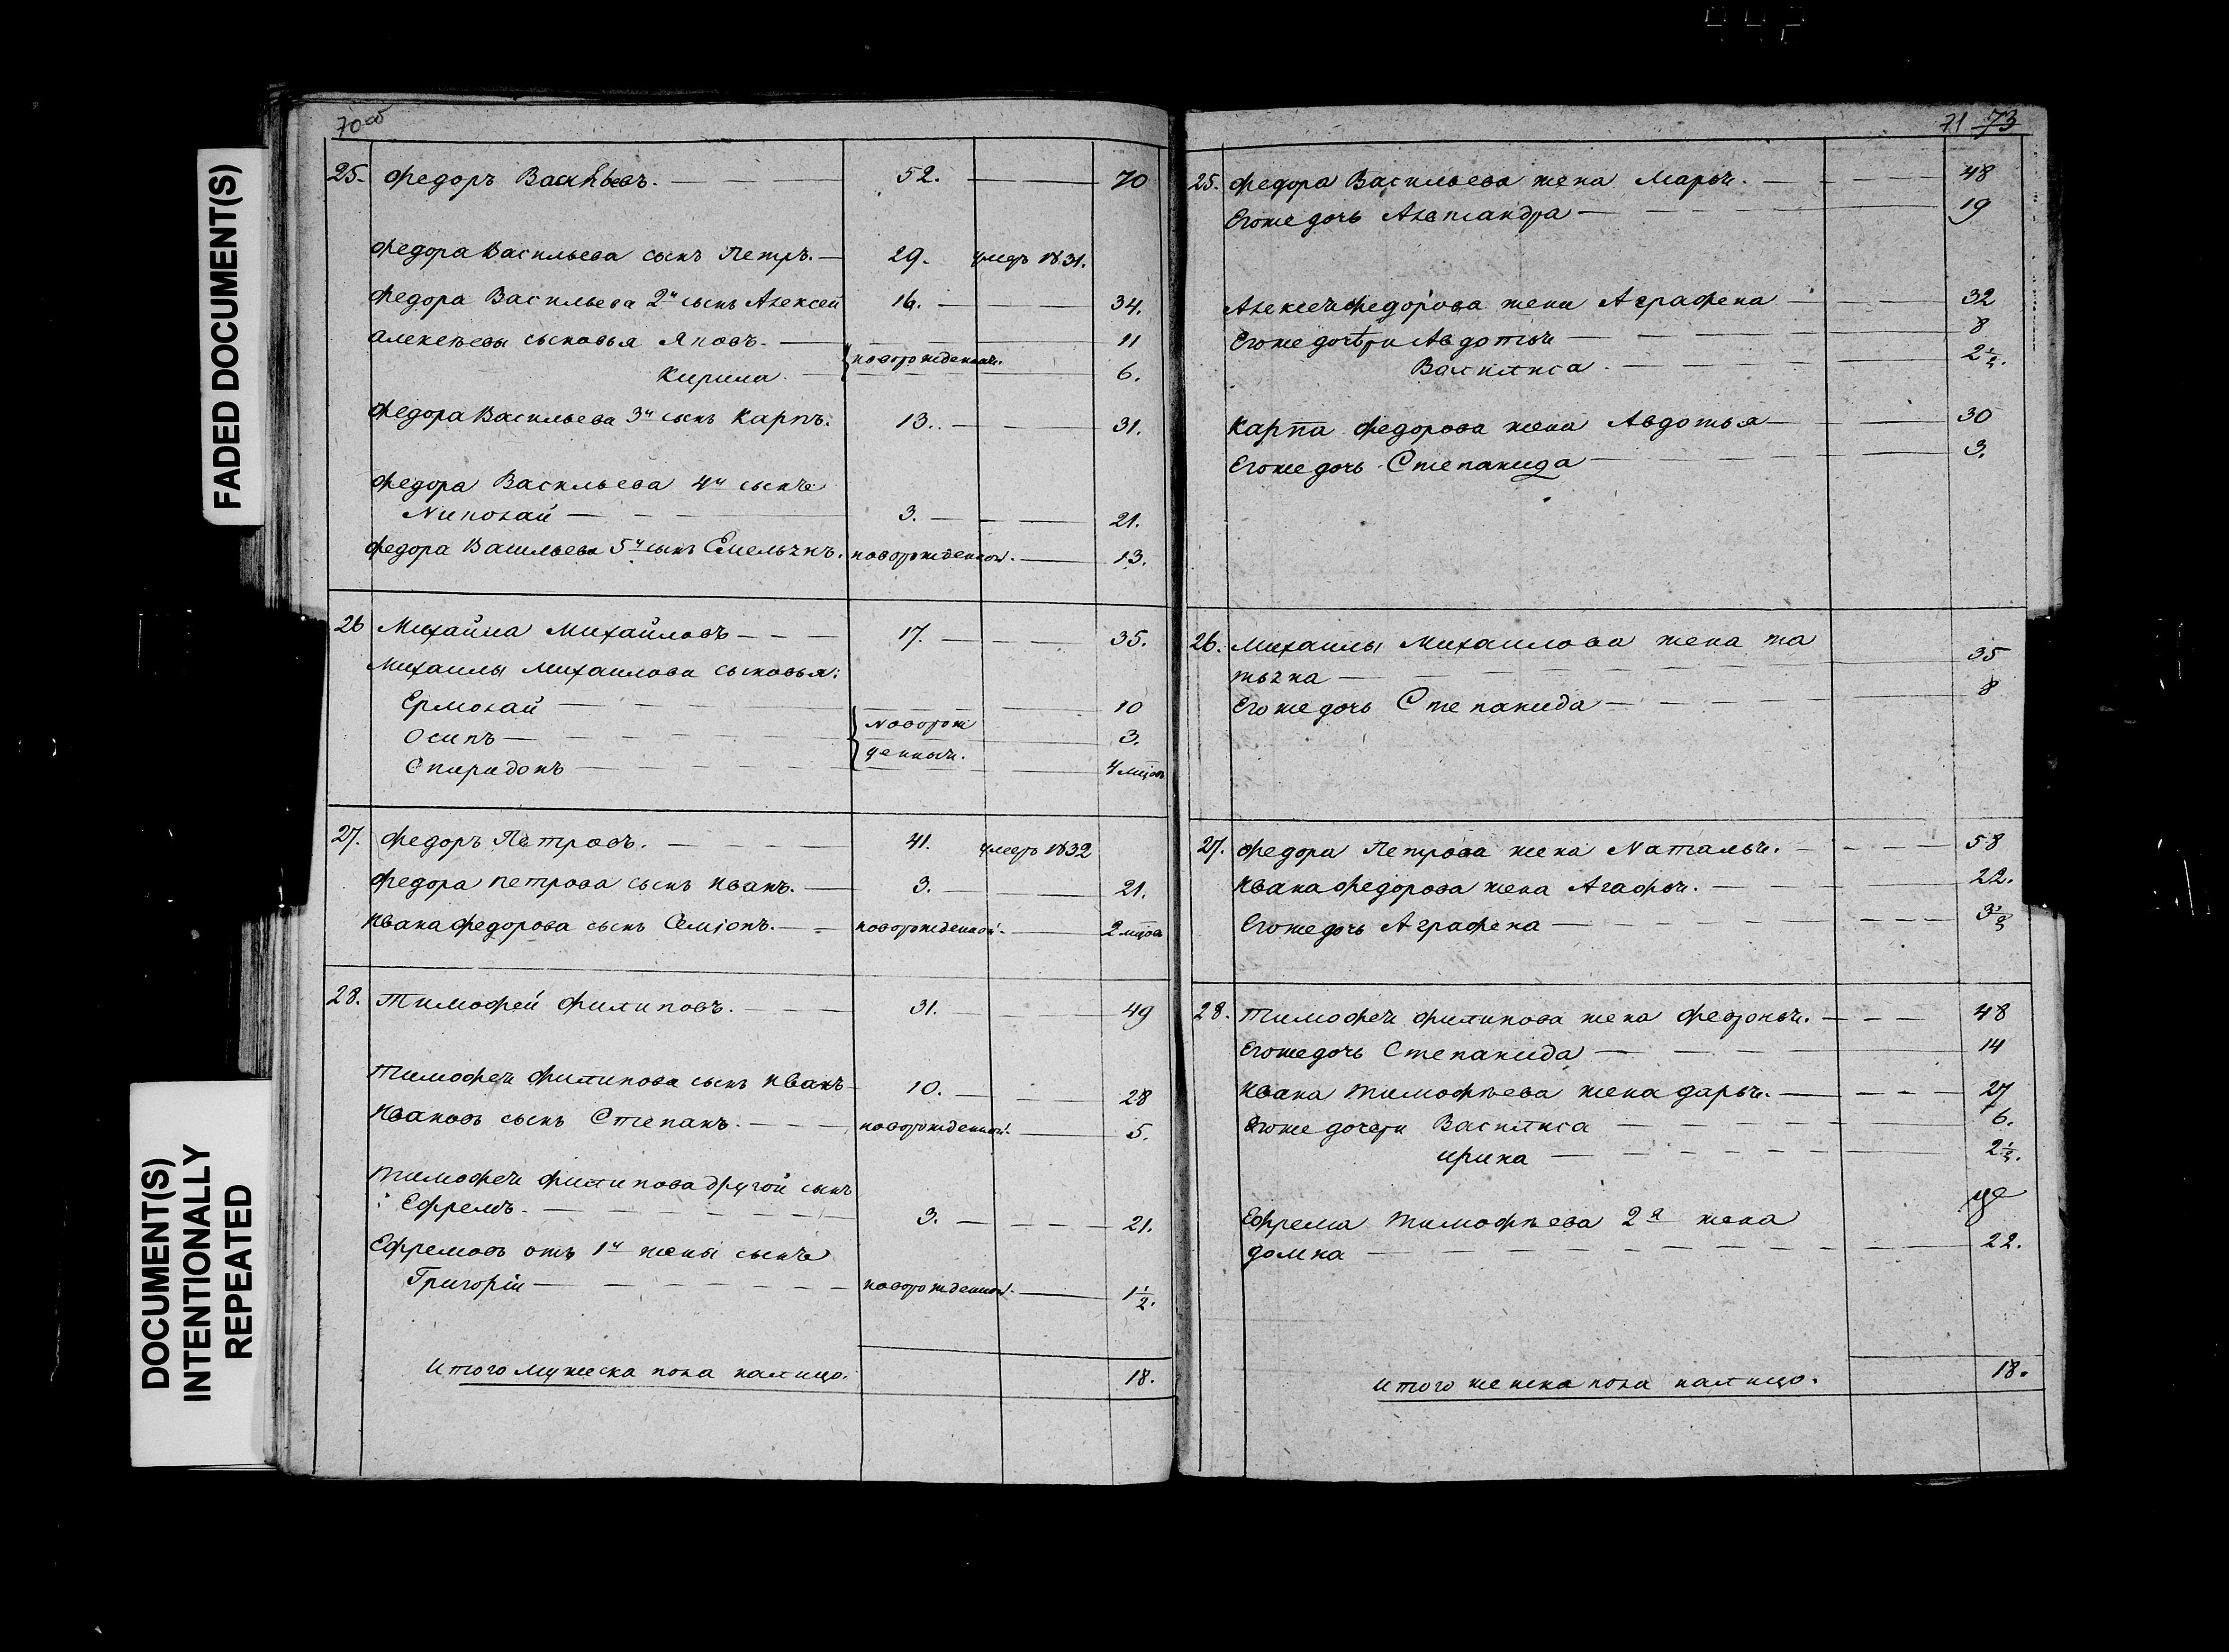 FADED DOCUMENT(S)
DOCUMENT(S)
INTENTIONALLY
REPEATED
70 об
25. Федоръ Васильевъ. 52. 70
Федора Васильева сынъ Петръ. 29. умеръ 1831.
Федора Васильева 2й сынъ Алексей 16. 34.
Алексѣевы сыновья Яковъ. 11
новорожденныи.
Кирила 6.
Федора Васильева 3й сынъ Карпъ. 13. 31.
Федора Васильева 4й сынъ
Николай 3. 21.
Федора Васильева 5й сынъ Емельянъ. новорожденной. 13.
26 Михайла Михайловъ 17. 35.
Михаилы Михаилова сыновья:
Ермолай 10
новорож
Осипъ 3.
денныи.
Спиридонъ 4 мцовъ
27. Федоръ Петровъ. 41. умеръ 1832
Федора Петрова сынъ Иванъ. 3. 21.
Ивана Федорова сынъ Семіонъ. новорожденной. 2 мцов
28. Тимофей Филиповъ. 31. 49
Тимофея Филипова сынъ Иванъ 10. 28
Ивановъ сынъ Степанъ. новорожденной. 5.
Тимофея Филипова другой сынъ
Ефремъ. 3. 21.
Ефремовъ отъ 1й жены сынъ
Григорій новорожденной. 1 1/2.
Итого мужеска пола налицо. 18.
71 73
25. Федора Васильева жена Марья. 48
Егоже дочь Александра 19
Алексея Федорова жена Аграфена 32
Егоже дочери Авдотья 8
Василиса 2 1/2.
Карпа Федорова жена Авдотья 30
Егоже дочь Степанида 3.
26. Михаилы Михаилова жена Та
тьяна 35
Егоже дочь Степанида 8
27. Федора Петрова жена Наталья. 58
Ивана Федорова жена Агафья. 22.
Егоже дочь Аграфена
28. Тимофея Филипова жена Феоронья. 48
Егоже дочь Степанида 14
Ивана Тимофѣева жена Дарья. 27
Егоже дочери Василиса 6.
Ирина 2 1/2.
Ефрема Тимофѣева 2я жена
Домна 22.
Итого женска пола налицо. 18.